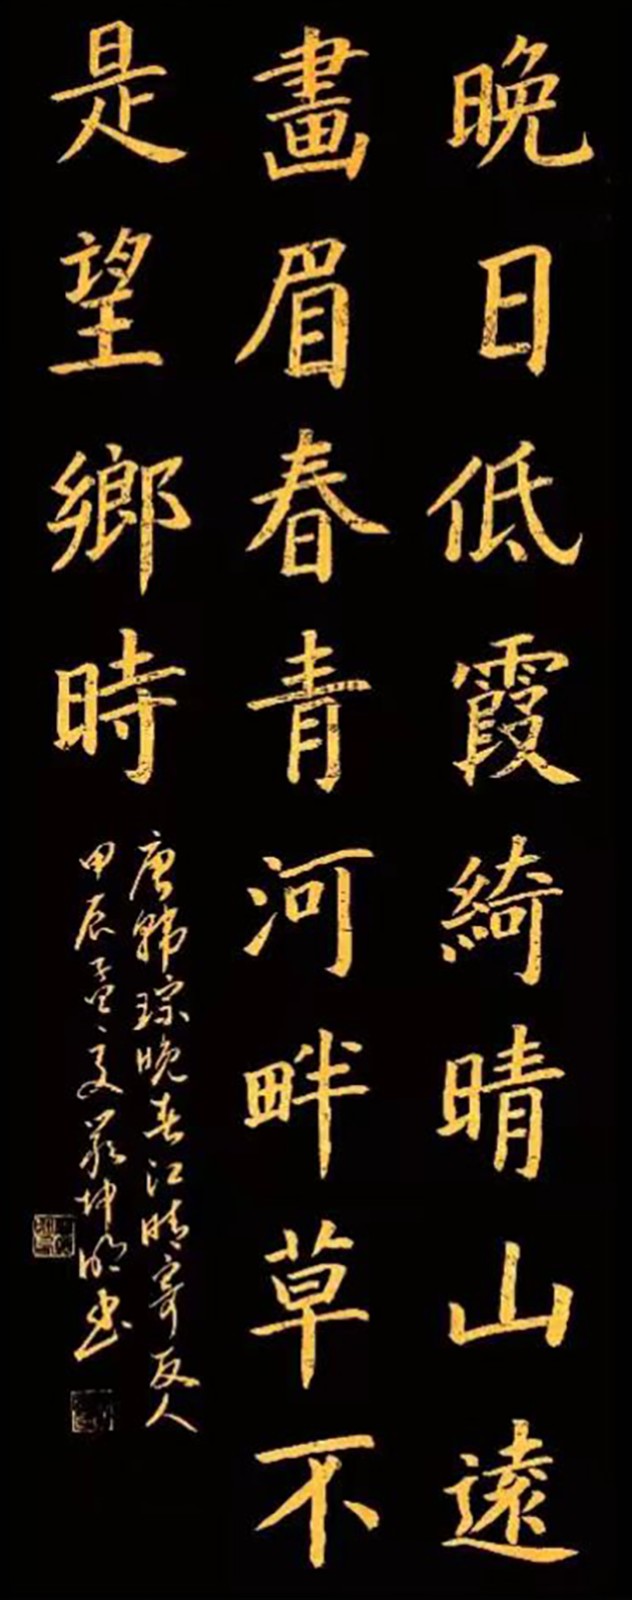 晚日低霞綺晴山遠
畫眉春青河畔草不
是望鄉時
唐韓琮晚春江晴寄友人
甲辰孟夏嚴坤明書